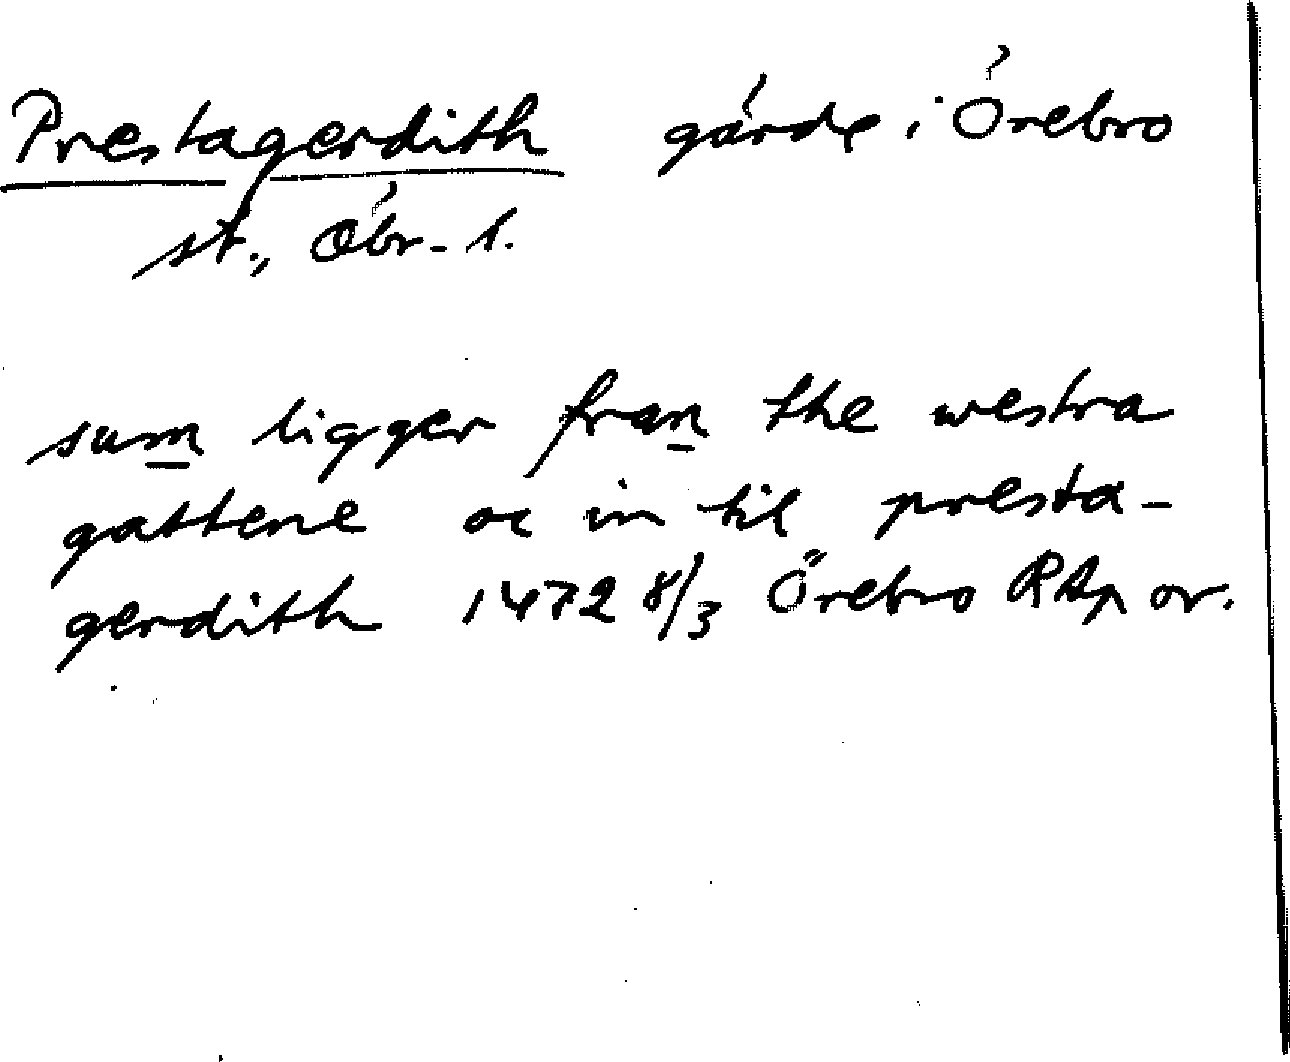 Prestagerdith gärde i Örebro
st., Öbr-l.
sum ligger fran the westra
gattene oc in til presta-
gerdith 1472 8/3 Örebro RAp or.